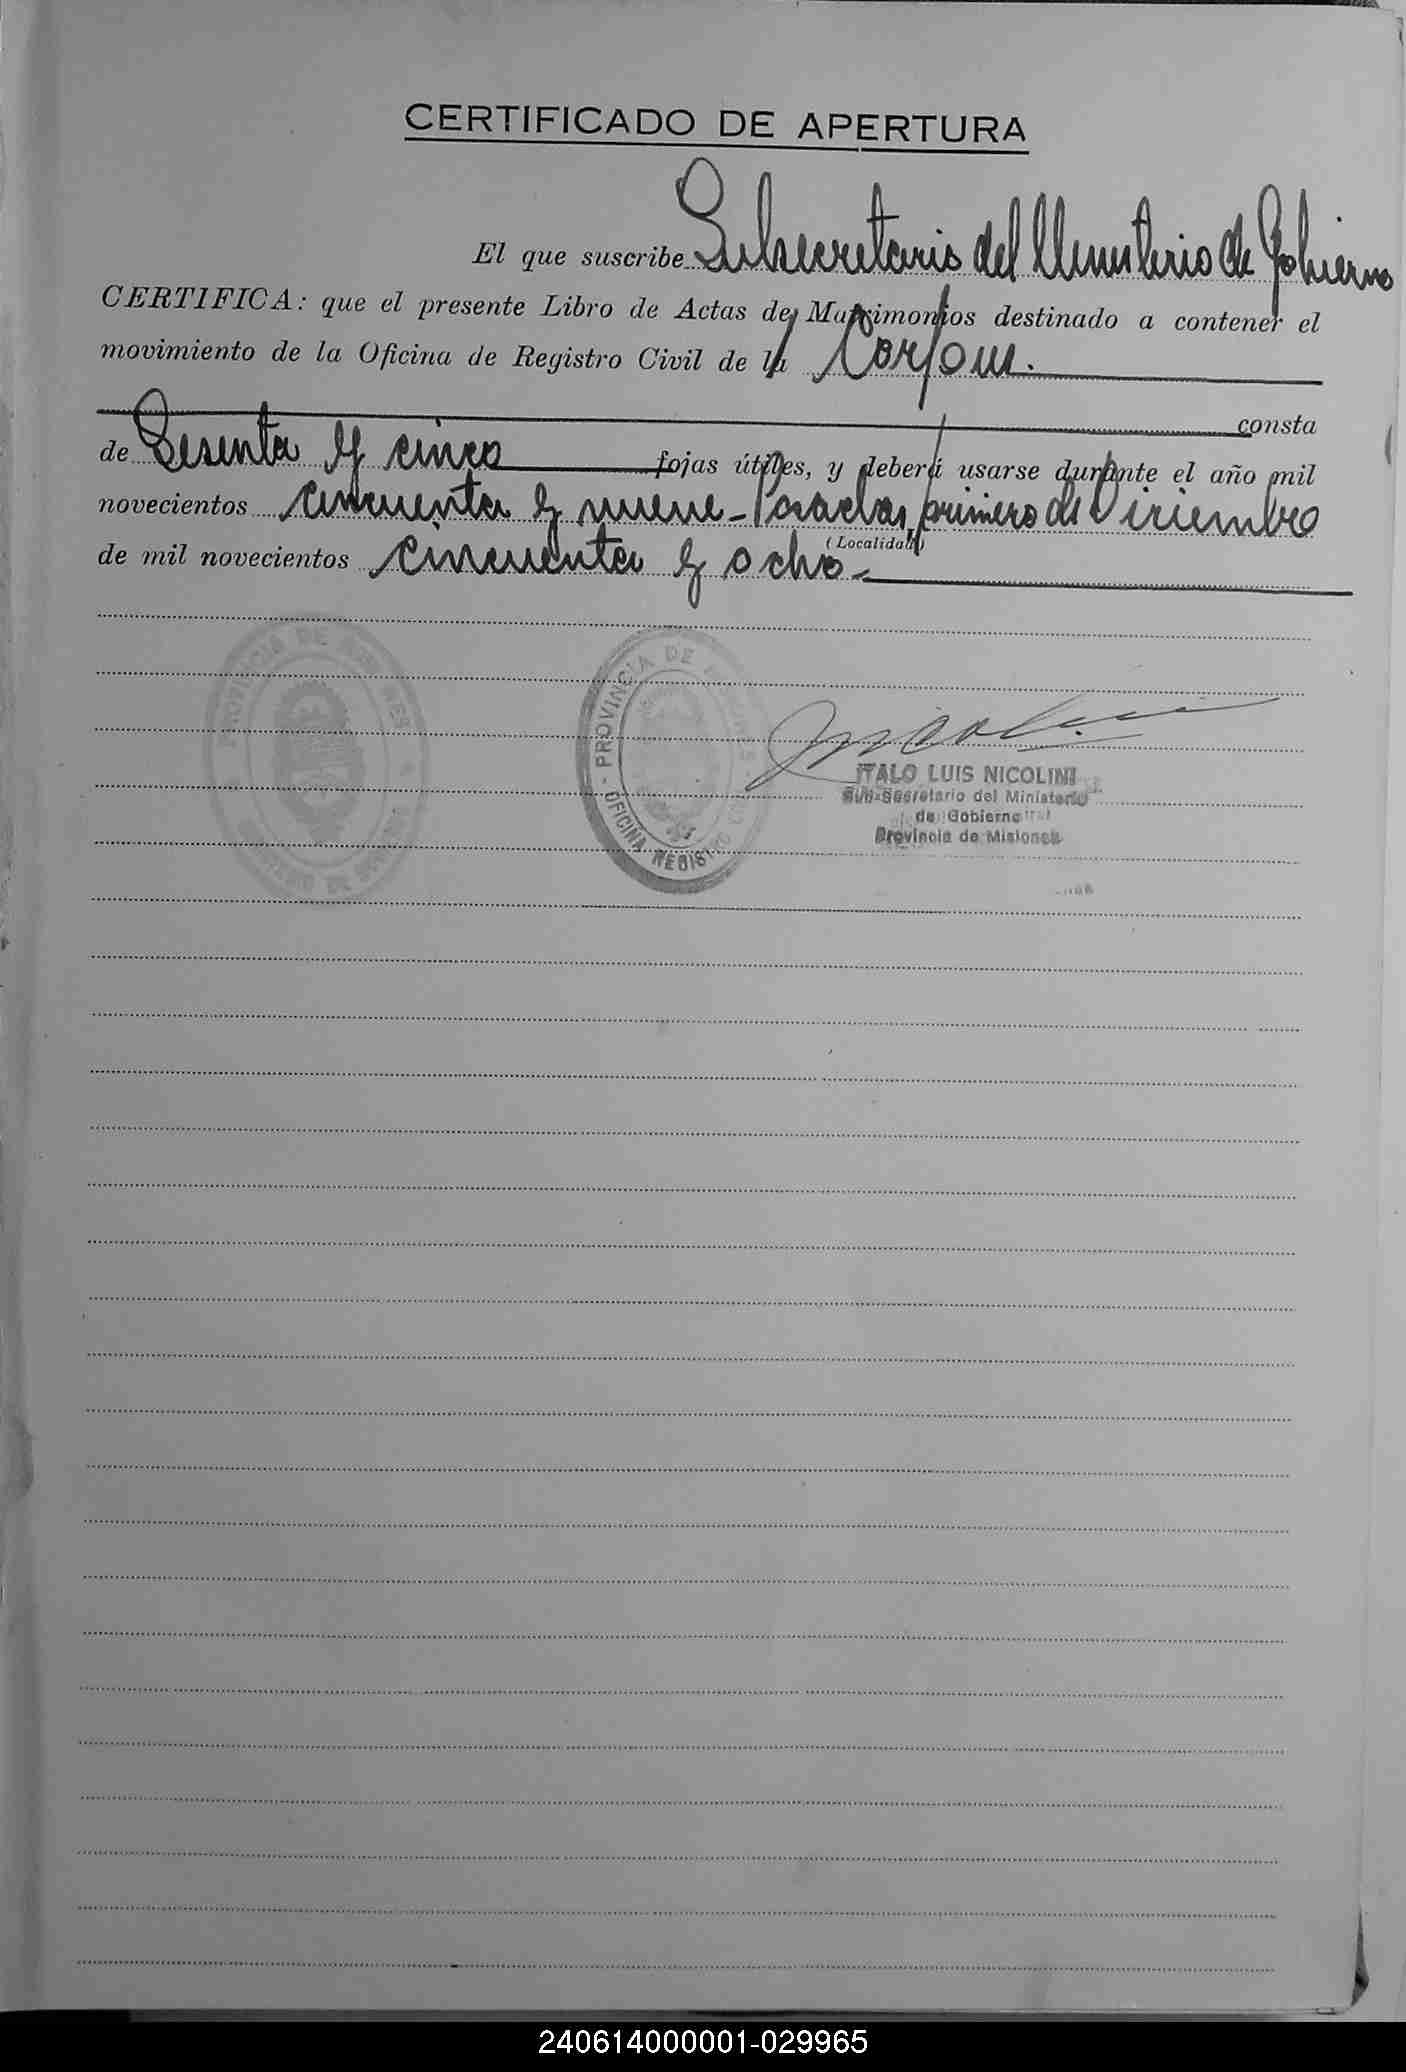 CERTIFICADO DE APERTURA
El que suscribe Subsecretario del Ministerio de Gobierno
CERTIFICA: que el presente Libro de Actas de Matrimonios destinado a contener el
movimiento de la Oficina de Registro Civil de la Corpus.
consta
de Sesenta y cinco fojas útiles, y deberá usarse durante el año mil
novecientos cincuenta y nueve - Posadas, primero de Diciembre
(Localidad)
de mil novecientos cincuenta y ocho.-
PROVINCIA DE MISIONES
PROVINCIA DE MISIONES
OFICINA REGISTRO
Nicolini
ITALO LUIS NICOLINI
Sub-Secretario del Ministerio
de Gobierno
Provincia de Misiones
240614000001-029965